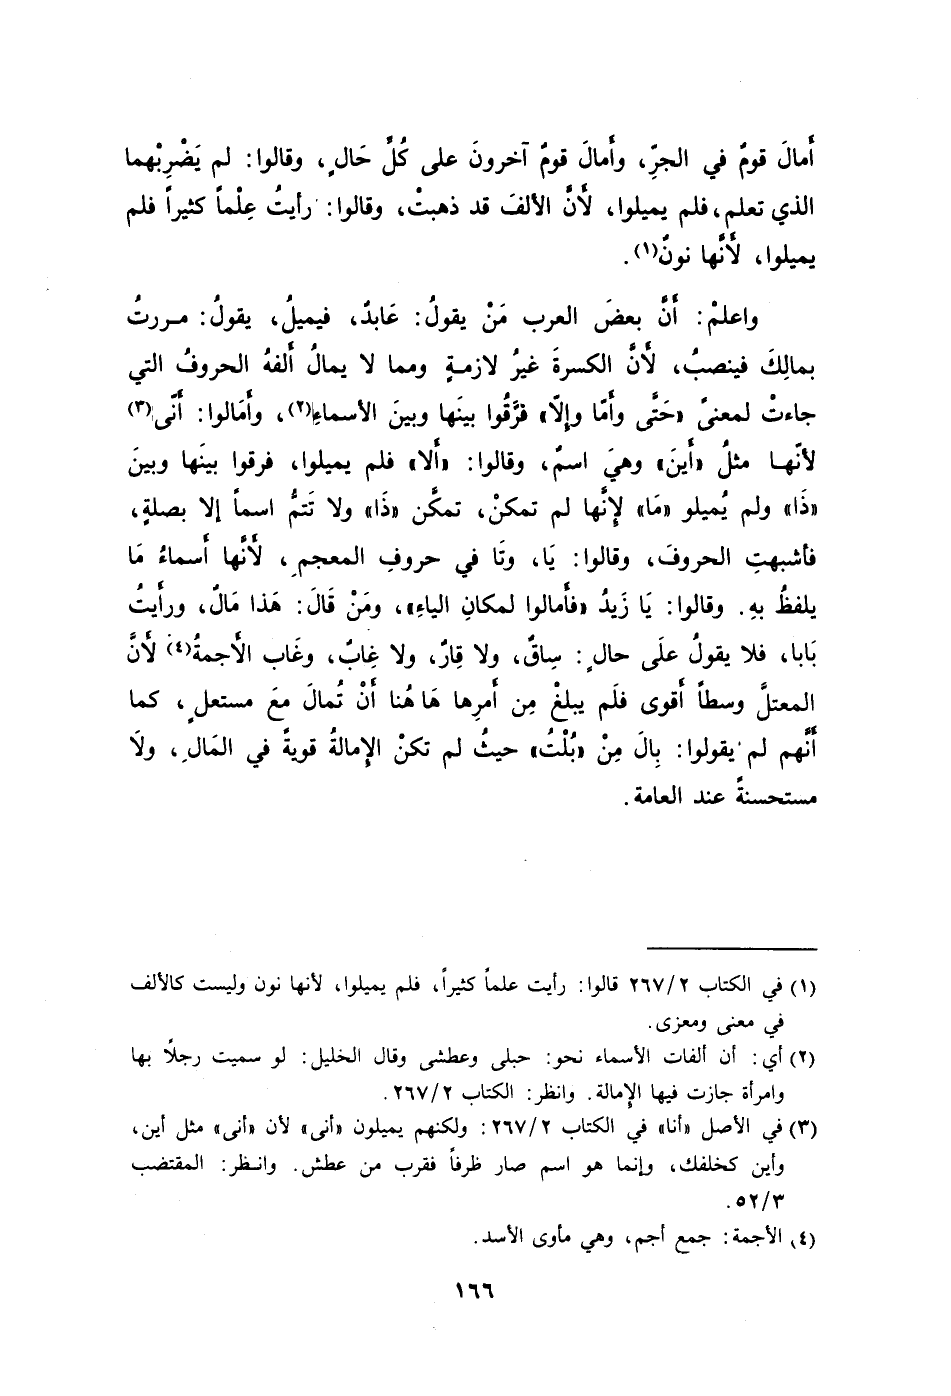 أَمالَ قومٌ في الجرِّ، وأَمالَ قومٌ آخرونَ على كُلِّ حَالٍ، وقالوا: لم يَضْرِبْهما
الذي تعلم، فلم يميلوا، لأَنَّ الألفَ قد ذهبتْ، وقالوا: رأيتُ عِلْماً كثيراً فلم
يميلوا، لأَنَّها نونٌ(١).
واعلمْ: أَنَّ بعضَ العرب مَنْ يقولُ: عَابدٌ، فيميلُ، يقولُ: مـررتُ
بمالِكَ فينصبُ، لأَنَّ الكسرةَ غيرُ لازمـةٍ ومما لا يمالُ أَلفهُ الحروفُ التي
جاءتْ لمعنىً «حَتَّى وأَمّا وإلّا» فرَّقُوا بينَها وبينَ الأسماءِ(٢)، وأَمَالوا: أَنّى(٣)
لأنّهـا مثلُ «أَينَ» وهيَ اسمٌ، وقالوا: «أَلا» فلم يميلوا، فرقوا بينَها وبينَ
«ذَا» ولم يُميلو «مَا» لإنَّها لم تمكنْ، تمكَّن «ذَا» ولا تَتمُّ اسماً إلا بصلةٍ،
فأشبهتِ الحروفَ، وقالوا: يَا، وتَا في حروفِ المعجمِ، لأَنَّها أَسماءُ مَا
يلفظُ بهِ. وقالوا: يَا زَيدُ «فأَمالوا لمكانِ الياءِ»، ومَنْ قَالَ: هَذا مَالٌ، ورأَيتُ
بَابا، فلا يقولُ علَى حالٍ: سِاقٌ، ولا قِارٌ، ولا غِابٌ، وغَاب الأَجمةُ(٤) لأَنَّ
المعتلَّ وسطاً أَقوى فلَم يبلغْ مِن أَمرِها هَا هُنا أَنْ تُمالَ مَعَ مستعلٍ، كما
أَنَّهم لم يقولوا: بِالَ مِنْ «بُلْتُ» حيثُ لم تكنْ الإمالةُ قويةً في المَالِ، ولَا
مستحسنةً عند العامة.
(١) في الكتاب ٢٦٧/٢ قالوا: رأيت علماً كثيراً، فلم يميلوا، لأنها نون وليست كالألف
في معنى ومعزى.
(٢) أي: أن ألفات الأسماء نحو: حبلى وعطشى وقال الخليل: لو سميت رجلاً بها
وامرأة جازت فيها الإمالة. وانظر: الكتاب ٢٦٧/٢.
(٣) في الأصل «أنا» في الكتاب ٢٦٧/٢: ولكنهم يميلون «أنى» لأن «أنى» مثل أين،
وأين كخلفك، وإنما هو اسم صار ظرفاً فقرب من عطش. وانـظر: المقتضب
٥٢/٣.
(٤) الأجمة: جمع أجم، وهي مأوى الأسد.
١٦٦